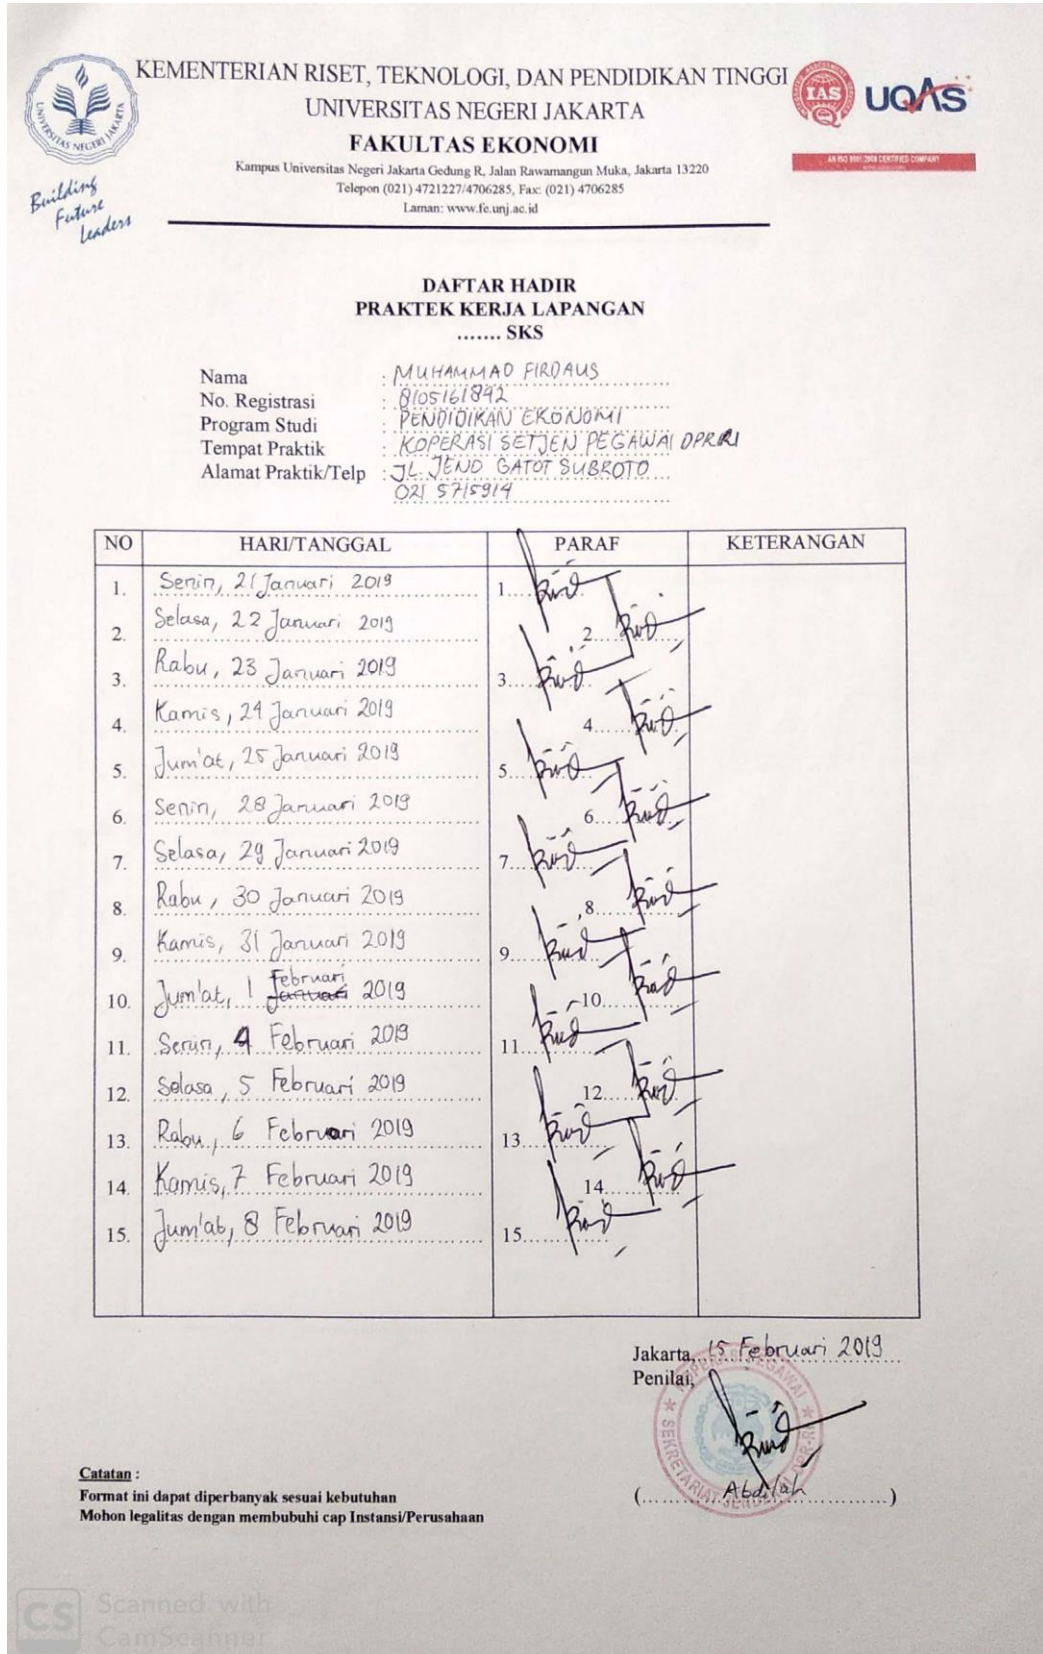 KEMENTERIAN RISET, TEKNOLOGI, DAN PENDIDIKAN TINGGI
UNIVERSITAS NEGERI JAKARTA
FAKULTAS EKONOMI
Kampus Universitas Negeri Jakarta Gedung R, Jalan Rawamangun Muka, Jakarta 13220
Telepon (021) 4721227/4706285, Fax: (021) 4706285
Laman: www.fe.unj.ac.id
UNIVERSITAS NEGERI JAKARTA
Building
Future
Leaders
IAS
UQAS
AN ISO 9001:2008 CERTIFIED COMPANY
DAFTAR HADIR
PRAKTEK KERJA LAPANGAN
....... SKS
Nama : MUHAMMAD FIRDAUS
No. Registrasi : 8105161892
Program Studi : PENDIDIKAN EKONOMI
Tempat Praktik : KOPERASI SETJEN PEGAWAI DPR RI
Alamat Praktik/Telp : JL. JEND GATOT SUBROTO
021 5715914
NO HARI/TANGGAL PARAF KETERANGAN
1. Senin, 21 Januari 2019 1.
2. Selasa, 22 Januari 2019 2.
3. Rabu, 23 Januari 2019 3.
4. Kamis, 24 Januari 2019 4.
5. Jum'at, 25 Januari 2019 5.
6. Senin, 28 Januari 2019 6.
7. Selasa, 29 Januari 2019 7.
8. Rabu, 30 Januari 2019 8.
9. Kamis, 31 Januari 2019 9.
10. Jum'at, 1 Februari 2019 10.
11. Senin, 4 Februari 2019 11.
12. Selasa, 5 Februari 2019 12.
13. Rabu, 6 Februari 2019 13.
14. Kamis, 7 Februari 2019 14.
15. Jum'at, 8 Februari 2019 15.
Jakarta, 15 Februari 2019
Penilai,
(Abdilah)
Catatan :
Format ini dapat diperbanyak sesuai kebutuhan
Mohon legalitas dengan membubuhi cap Instansi/Perusahaan
CS Scanned with
CamScanner